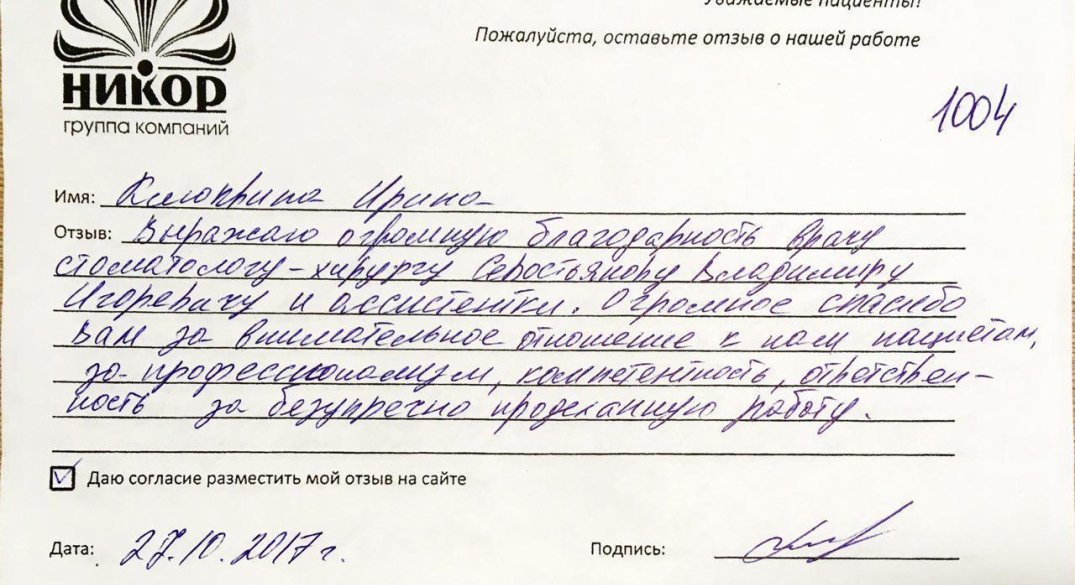 Уважаемые пациенты!
Пожалуйста, оставьте отзыв о нашей работе
НИКОР
группа компаний
1004
Имя: Ирина
Отзыв: Выражаю огромную благодарность врачу
стоматологу-хирургу Севостьянову Владимиру
Игоревичу и ассистентки. Огромное спасибо
вам за внимательное отношение к нам пациетам,
за профессионализм, компетентность, ответствен-
ность за безупречно проделанную работу.
Даю согласие разместить мой отзыв на сайте
Дата: 27.10.2017 г.
Подпись: